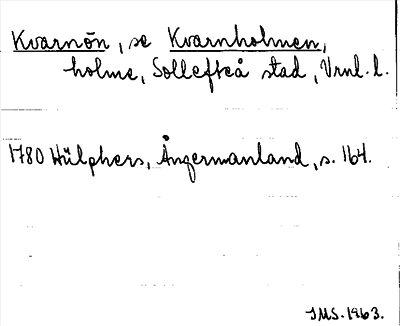 Kvarnön, se Kvarnholmen,
holme, Sollefteå stad, Vrnl. l.
1780 Hülphers, Ångermanland, s. 164.
JMS. 1963.